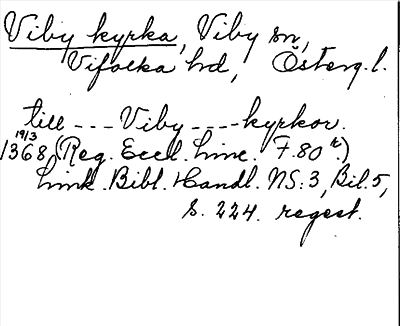 Viby kyrka, Viby sn,
Vifolka hd, Österg.l.
till --- Viby ---- kyrkor.
19/3
1368 (Reg. Eccl. Linc. F.80 r.)
Link. Bibl. Handl. NS:3, Bil.5,
s. 224. regest.